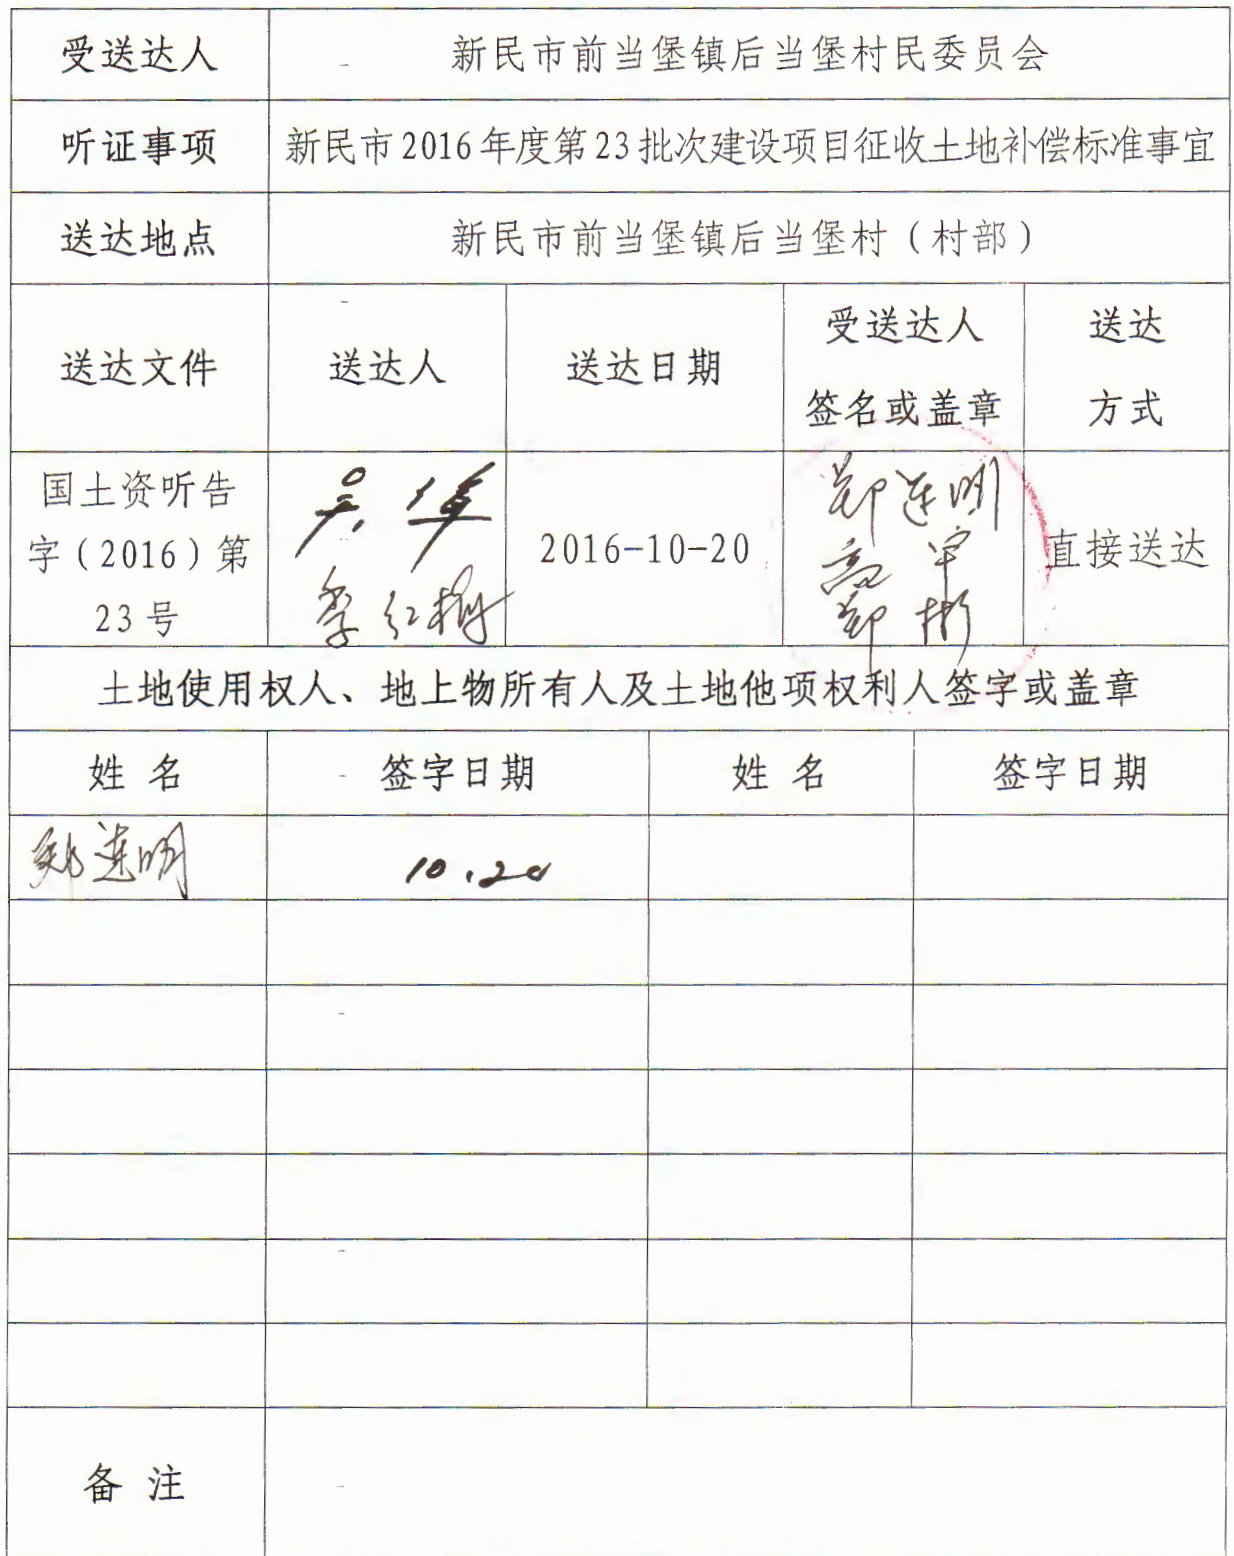 受送达人 新民市前当堡镇后当堡村民委员会
听证事项 新民市2016年度第23批次建设项目征收土地补偿标准事宜
送达地点 新民市前当堡镇后当堡村（村部）
送达文件 送达人 送达日期 受送达人 送达
签名或盖章 方式
国土资听告
字（2016）第
23号
李红梅
2016-10-20
郑连明
郑彬
直接送达
土地使用权人、地上物所有人及土地他项权利人签字或盖章
姓名 签字日期 姓名 签字日期
郑连明 10.20
备注